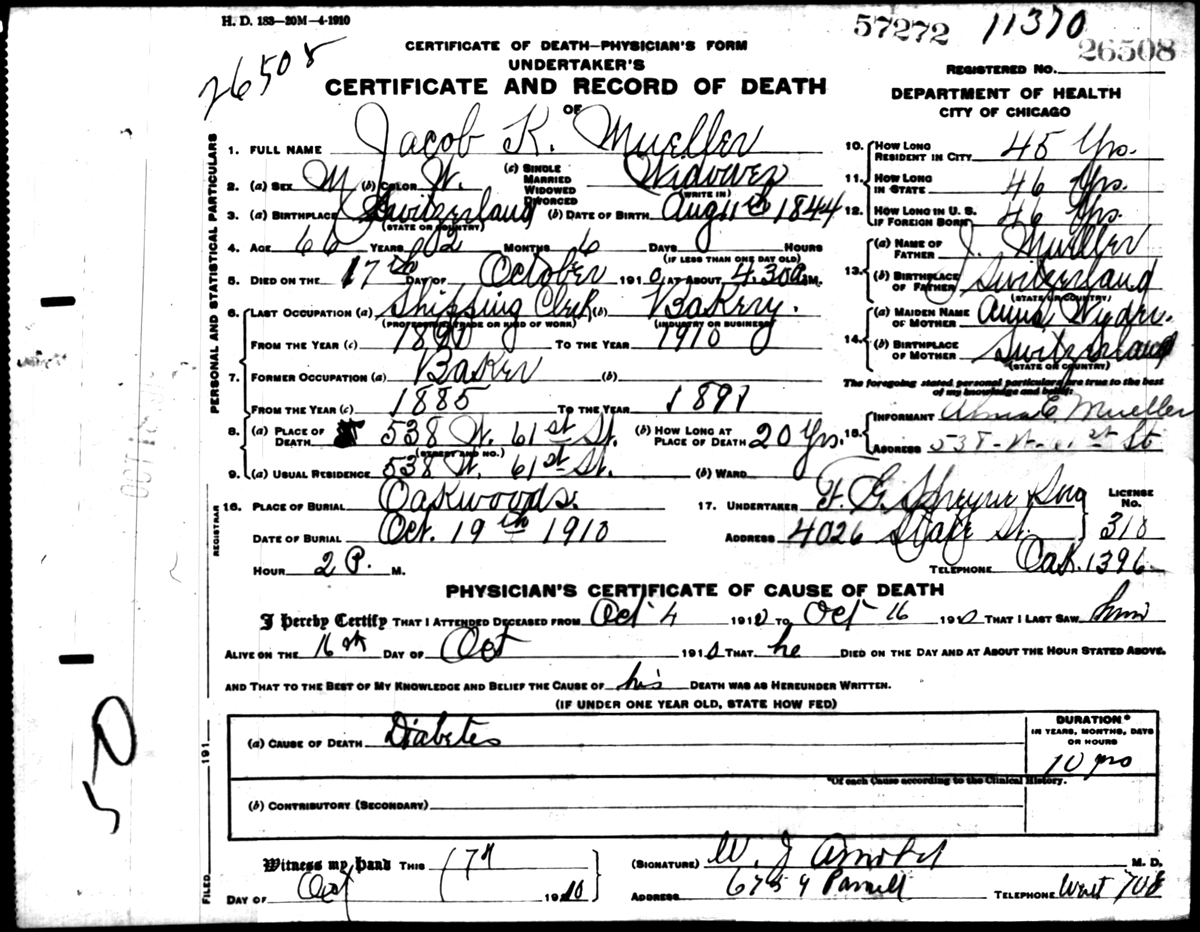 H. D. 183—20M—4-1910
57272 11370
26508
26508
CERTIFICATE OF DEATH—PHYSICIAN'S FORM
UNDERTAKER'S
CERTIFICATE AND RECORD OF DEATH
OF
REGISTERED NO.
DEPARTMENT OF HEALTH
CITY OF CHICAGO
PERSONAL AND STATISTICAL PARTICULARS
1. FULL NAME Jacob K. Mueller
2. (a) SEX M (b) COLOR W. (c) SINGLE MARRIED WIDOWED DIVORCED Widower
(WRITE IN)
3. (a) BIRTHPLACE Switzerland (b) DATE OF BIRTH Aug 11th 1844
(STATE OR COUNTRY)
4. AGE 66 YEARS 02 MONTHS 6 DAYS HOURS
(IF LESS THAN ONE DAY OLD)
5. DIED ON THE 17th DAY OF October 1910, AT ABOUT 4.30 a. M.
6. LAST OCCUPATION (a) Shipping Clerk (b) Bakery.
(PROFESSION, TRADE OR KIND OF WORK) (INDUSTRY OR BUSINESS)
FROM THE YEAR (c) TO THE YEAR 1910
7. FORMER OCCUPATION (a) Baker (b)
FROM THE YEAR (c) 1885 TO THE YEAR 1891
8. (a) PLACE OF DEATH 538 W. 61st St. (b) HOW LONG AT PLACE OF DEATH 20 Yrs.
(STREET AND NO.)
9. (a) USUAL RESIDENCE 538 W. 61st St. (b) WARD
10. HOW LONG RESIDENT IN CITY 45 Yrs.
11. HOW LONG IN STATE 46 Yrs.
12. HOW LONG IN U. S. IF FOREIGN BORN 46 Yrs.
13. (a) NAME OF FATHER J. Mueller
(b) BIRTHPLACE OF FATHER Switzerland
(STATE OR COUNTRY)
14. (a) MAIDEN NAME OF MOTHER Anna
(b) BIRTHPLACE OF MOTHER Switzerland
(STATE OR COUNTRY)
The foregoing stated personal particulars are true to the best
of my knowledge and belief:
15. INFORMANT E. Mueller
ADDRESS 538 W. 61st St
REGISTRAR
16. PLACE OF BURIAL Oakwoods.
DATE OF BURIAL Oct. 19th 1910
HOUR 2 P. M.
17. UNDERTAKER F. G.
LICENSE NO. 318
ADDRESS 4026 State St.
TELEPHONE Oak. 1396
PHYSICIAN'S CERTIFICATE OF CAUSE OF DEATH
I hereby Certify THAT I ATTENDED DECEASED FROM Oct 4 1910 TO Oct 16 1910 THAT I LAST SAW him
ALIVE ON THE 16th DAY OF Oct 1910 THAT he DIED ON THE DAY AND AT ABOUT THE HOUR STATED ABOVE.
AND THAT TO THE BEST OF MY KNOWLEDGE AND BELIEF THE CAUSE OF his DEATH WAS AS HEREUNDER WRITTEN.
(IF UNDER ONE YEAR OLD, STATE HOW FED)
50
FILED 191
(a) CAUSE OF DEATH Diabetes
DURATION*
IN YEARS, MONTHS, DAYS
OR HOURS
10 yrs
*Of each Cause according to the Clinical History.
(b) CONTRIBUTORY (SECONDARY)
Witness my Hand THIS 17th
DAY OF Oct 1910
(SIGNATURE) W. J. Arnold M. D.
ADDRESS Parnell TELEPHONE Went 708